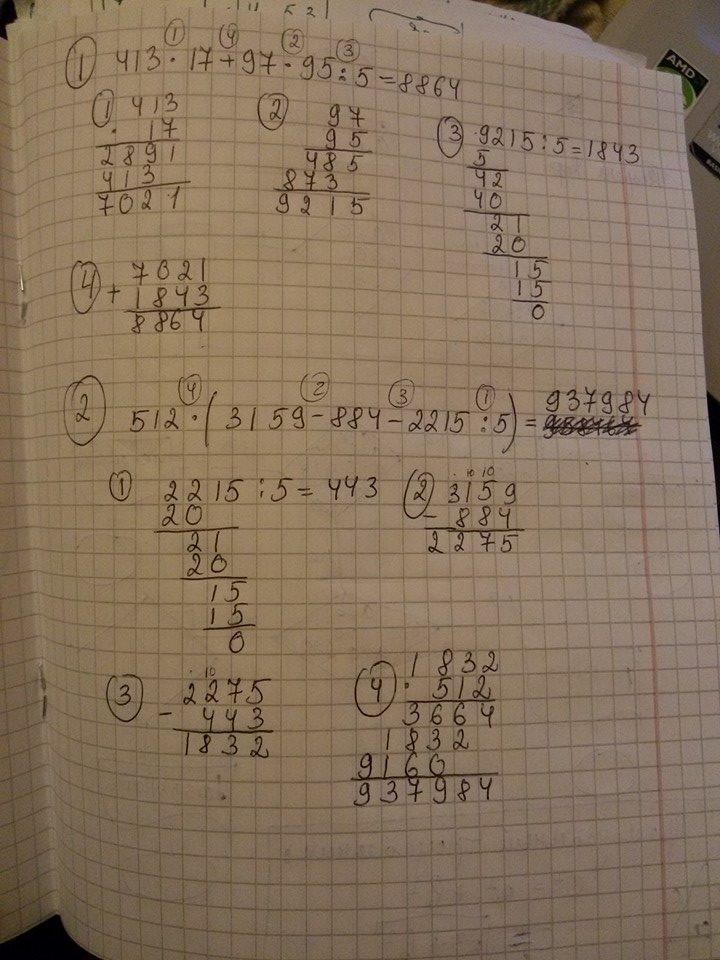 ① 413 · 17 + 97 · 95 : 5 = 8864
① ④ ② ③
① 413
· 17
2891
413
7021
② 97
95
485
873
9215
③ 9215 : 5 = 1843
5
42
40
21
20
15
15
0
④ 7021
+ 1843
8864
② 512 · (3159 - 884 - 2215 : 5) = 937984
④ ② ③ ①
① 2215 : 5 = 443
20
21
20
15
15
0
② · 10 10
3159
- 884
2275
③ · 10
2275
- 443
1832
④ 1832
· 512
3664
1832
9160
937984
AMD